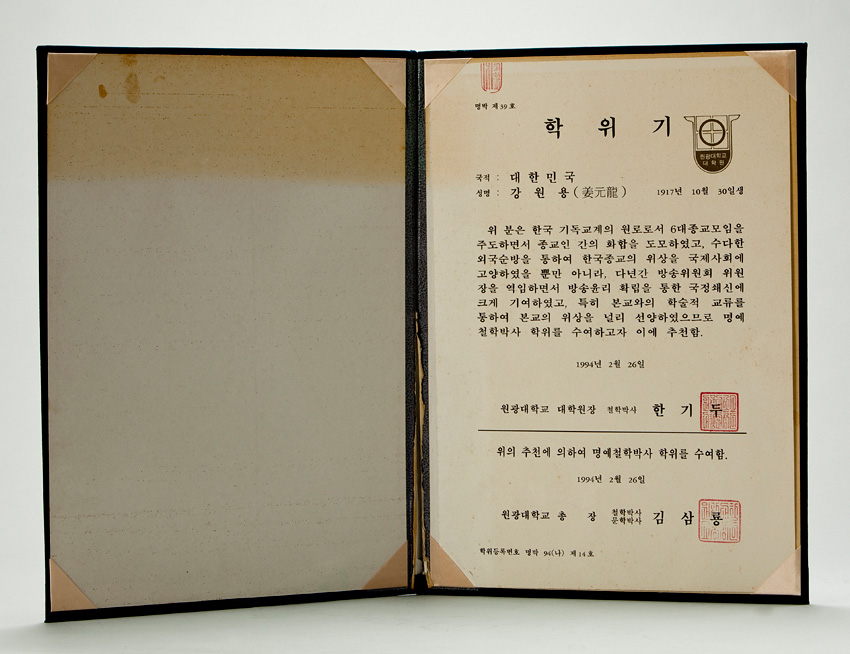 명박 제39호
학 위 기
원광대학교
대학원
국적 : 대한민국
성명 : 강 원 용 (姜元龍) 1917년 10월 30일생
위 분은 한국 기독교계의 원로로서 6대종교모임을
주도하면서 종교인 간의 화합을 도모하였고, 수다한
외국순방을 통하여 한국종교의 위상을 국제사회에
고양하였을 뿐만 아니라, 다년간 방송위원회 위원
장을 역임하면서 방송윤리 확립을 통한 국정쇄신에
크게 기여하였고, 특히 본교와의 학술적 교류를
통하여 본교의 위상을 널리 선양하였으므로 명예
철학박사 학위를 수여하고자 이에 추천함.
1994년 2월 26일
원광대학교 대학원장 철학박사 한 기 두
위의 추천에 의하여 명예철학박사 학위를 수여함.
1994년 2월 26일
원광대학교 총 장 철학박사 문학박사 김 삼 룡
학위등록번호 명박 94(나) 제14호